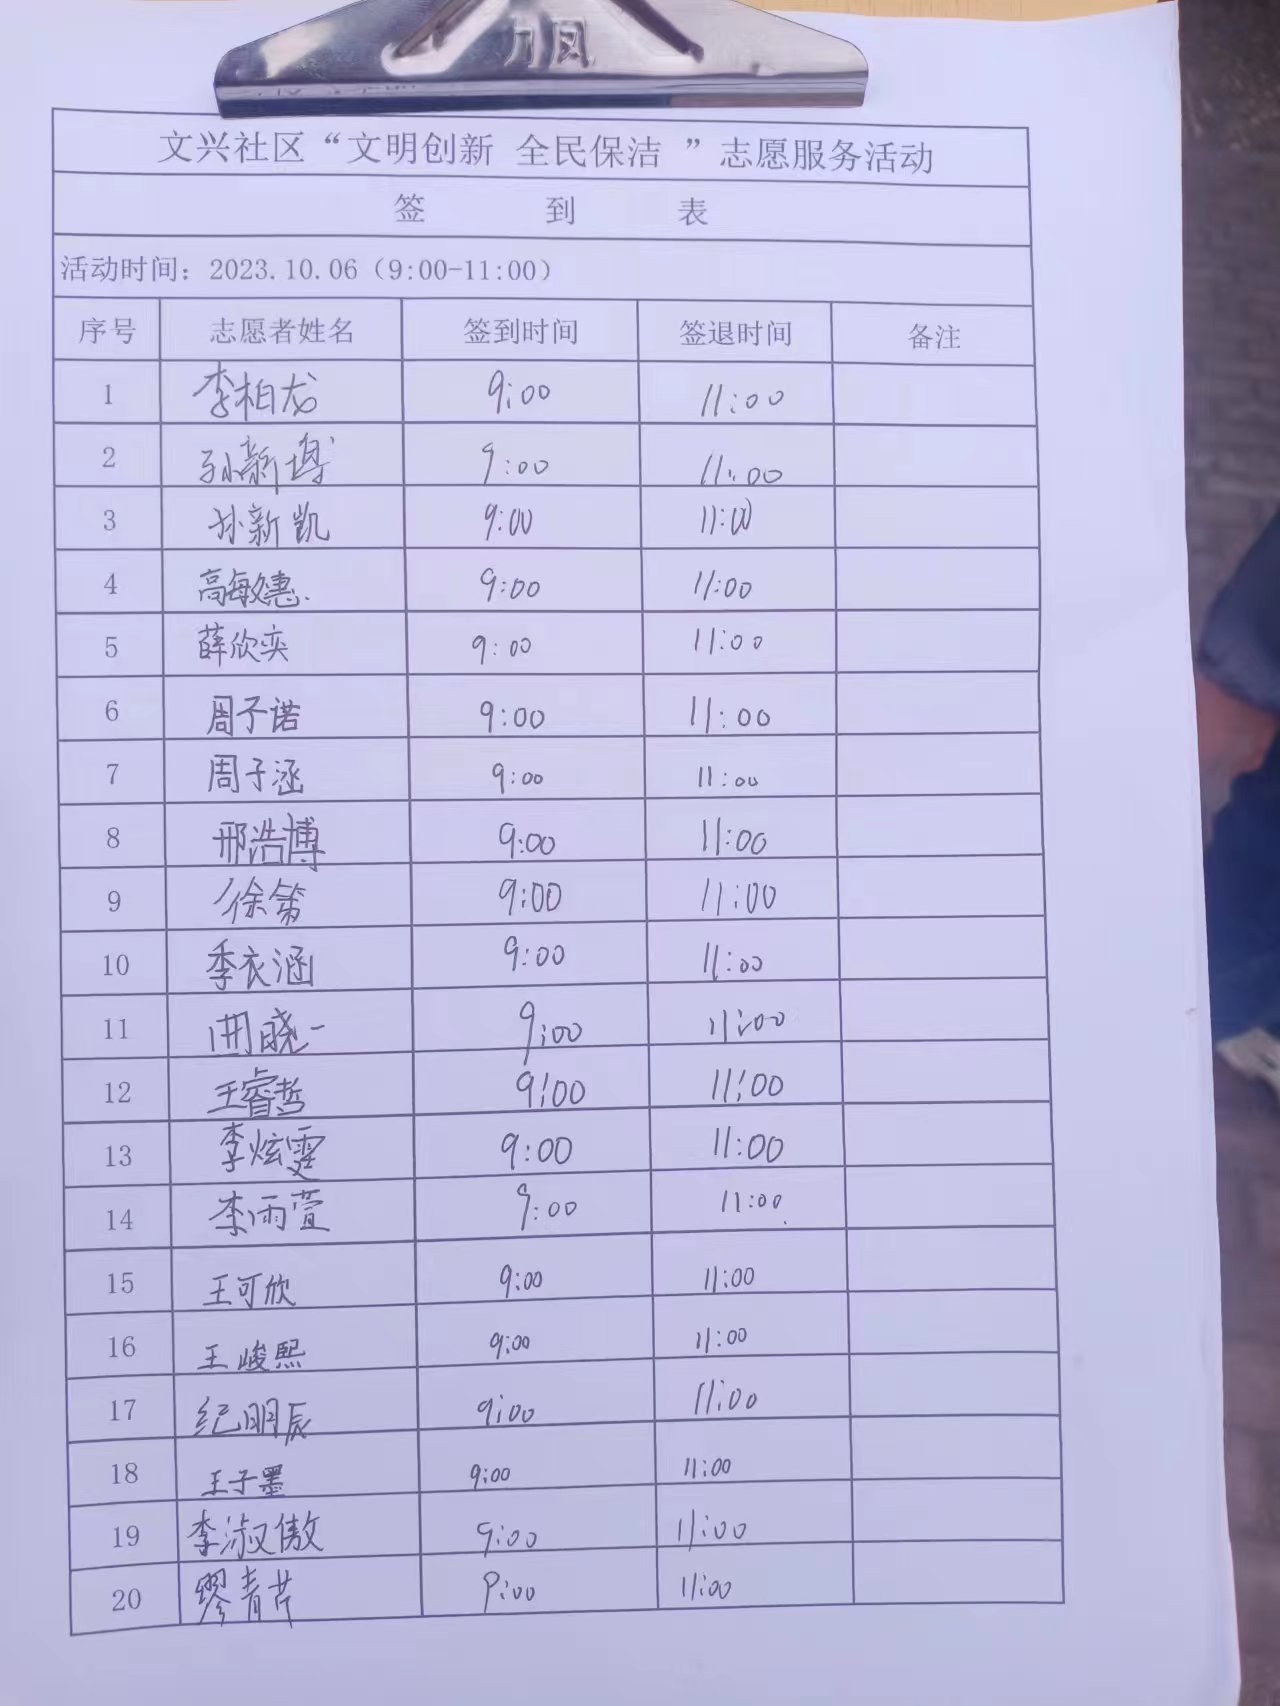 文兴社区“文明创新 全民保洁 ”志愿服务活动
签 到 表
活动时间：2023.10.06（9:00-11:00）
序号 志愿者姓名 签到时间 签退时间 备注
1 李柏龙 9:00 11:00
2 孙新博 9:00 11:00
3 孙新凯 9:00 11:00
4 高敏惠 9:00 11:00
5 薛欣奕 9:00 11:00
6 周子诺 9:00 11:00
7 周子涵 9:00 11:00
8 邢浩博 9:00 11:00
9 徐 9:00 11:00
10 季衣涵 9:00 11:00
11 晓一 9:00 11:00
12 王睿哲 9:00 11:00
13 李炫霆 9:00 11:00
14 李雨萱 9:00 11:00
15 王可欣 9:00 11:00
16 王峻熙 9:00 11:00
17 纪明辰 9:00 11:00
18 王子墨 9:00 11:00
19 李淑傲 9:00 11:00
20 缪青芹 9:00 11:00